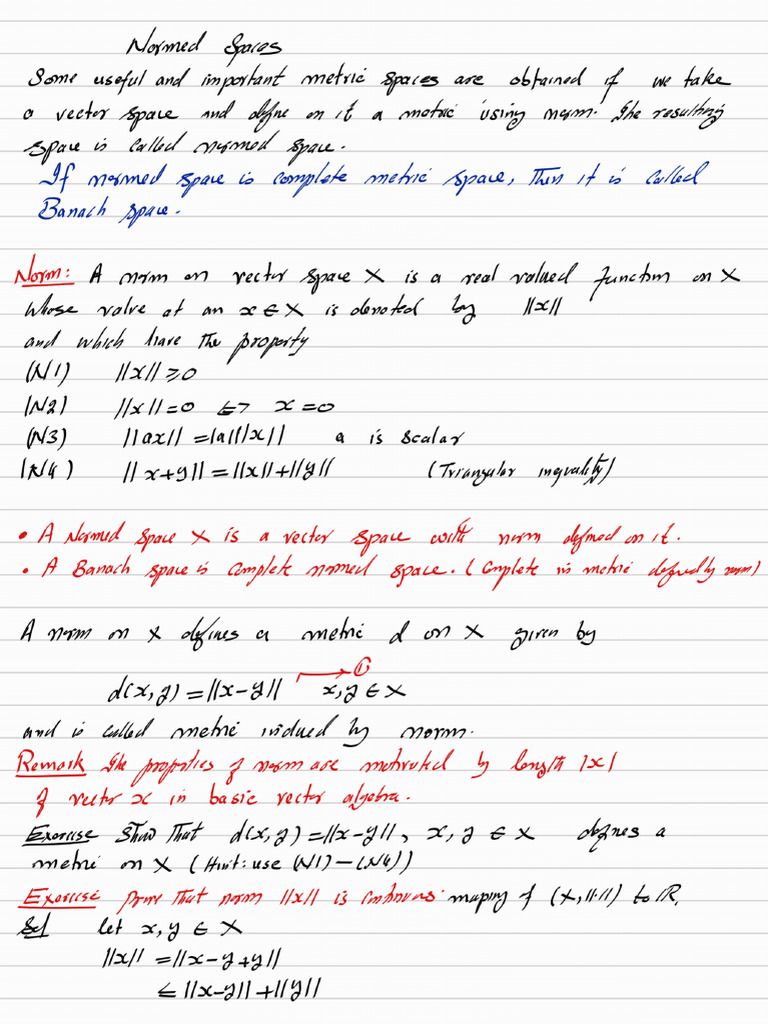 Normed Spaces
Some useful and important metric spaces are obtained if we take
a vector space and define on it a metric using norm. The resulting
space is called normed space.
If normed space is complete metric space, then it is called
Banach space.
Norm: A norm on vector space X is a real valued function on X
whose value at an x ∈ X is denoted by ||x||
and which have the property
(N1) ||x|| ≥ 0
(N2) ||x|| = 0 ⇔ x = 0
(N3) ||ax|| = |a| ||x|| a is scalar
(N4) ||x+y|| = ||x|| + ||y|| (Triangular inequality)
• A Normed space X is a vector space with norm defined on it.
• A Banach space is complete normed space. (Complete in metric defined by norm)
A norm on X defines a metric d on X given by
d(x,y) = ||x-y|| → ① x,y ∈ X
and is called metric induced by norm.
Remark The properties of norm are motivated by length |x|
of vector x in basic vector algebra.
Exercise Show that d(x,y) = ||x-y||, x, y ∈ X defines a
metric on X (Hint: use (N1) - (N4))
Exercise prove that norm ||x|| is continuous mapping of (X, ||·||) to ℝ.
Sol let x, y ∈ X
||x|| = ||x-y+y||
≤ ||x-y|| + ||y||